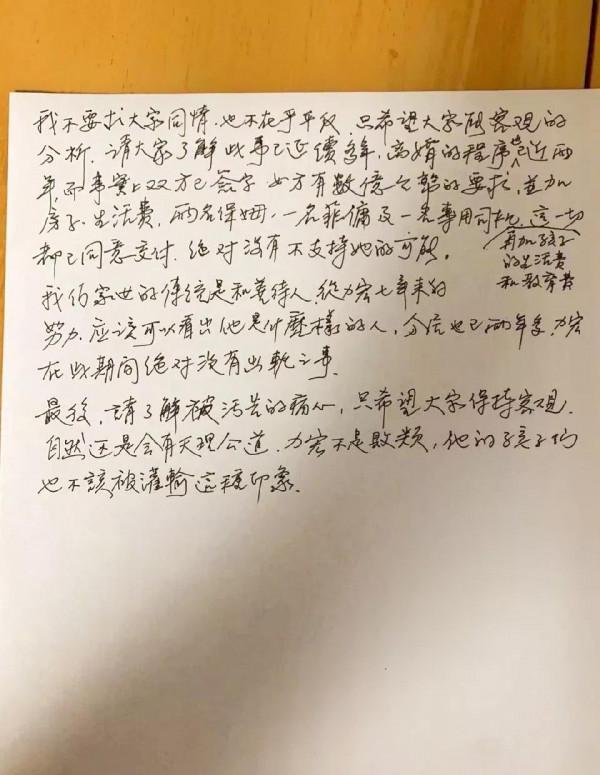 我不要求大家同情,也不在乎平反,只希望大家能客观的
分析,请大家了解此事已延續多年,离婚的程序也已近兩
年,而事實上双方已签字 女方有数億金额的要求,並加
房子、生活费,兩名保姆,一名菲傭及一名專用司机,這一切
再加孩子
的生活费
和教育费
都已同意交付,绝对沒有不支持她的可能。
我们家世的傳統是和善待人,從力宏七年来的
努力,应该可以看出他是什麼樣的人,分居也已兩年多,力宏
在此期间绝对沒有出軌之事.
最後,請了解被污篾的痛心,只希望大家保持客观.
自然还是会有天理公道.力宏不是敗類,他的孩子们
也不該被灌輸這種印象.